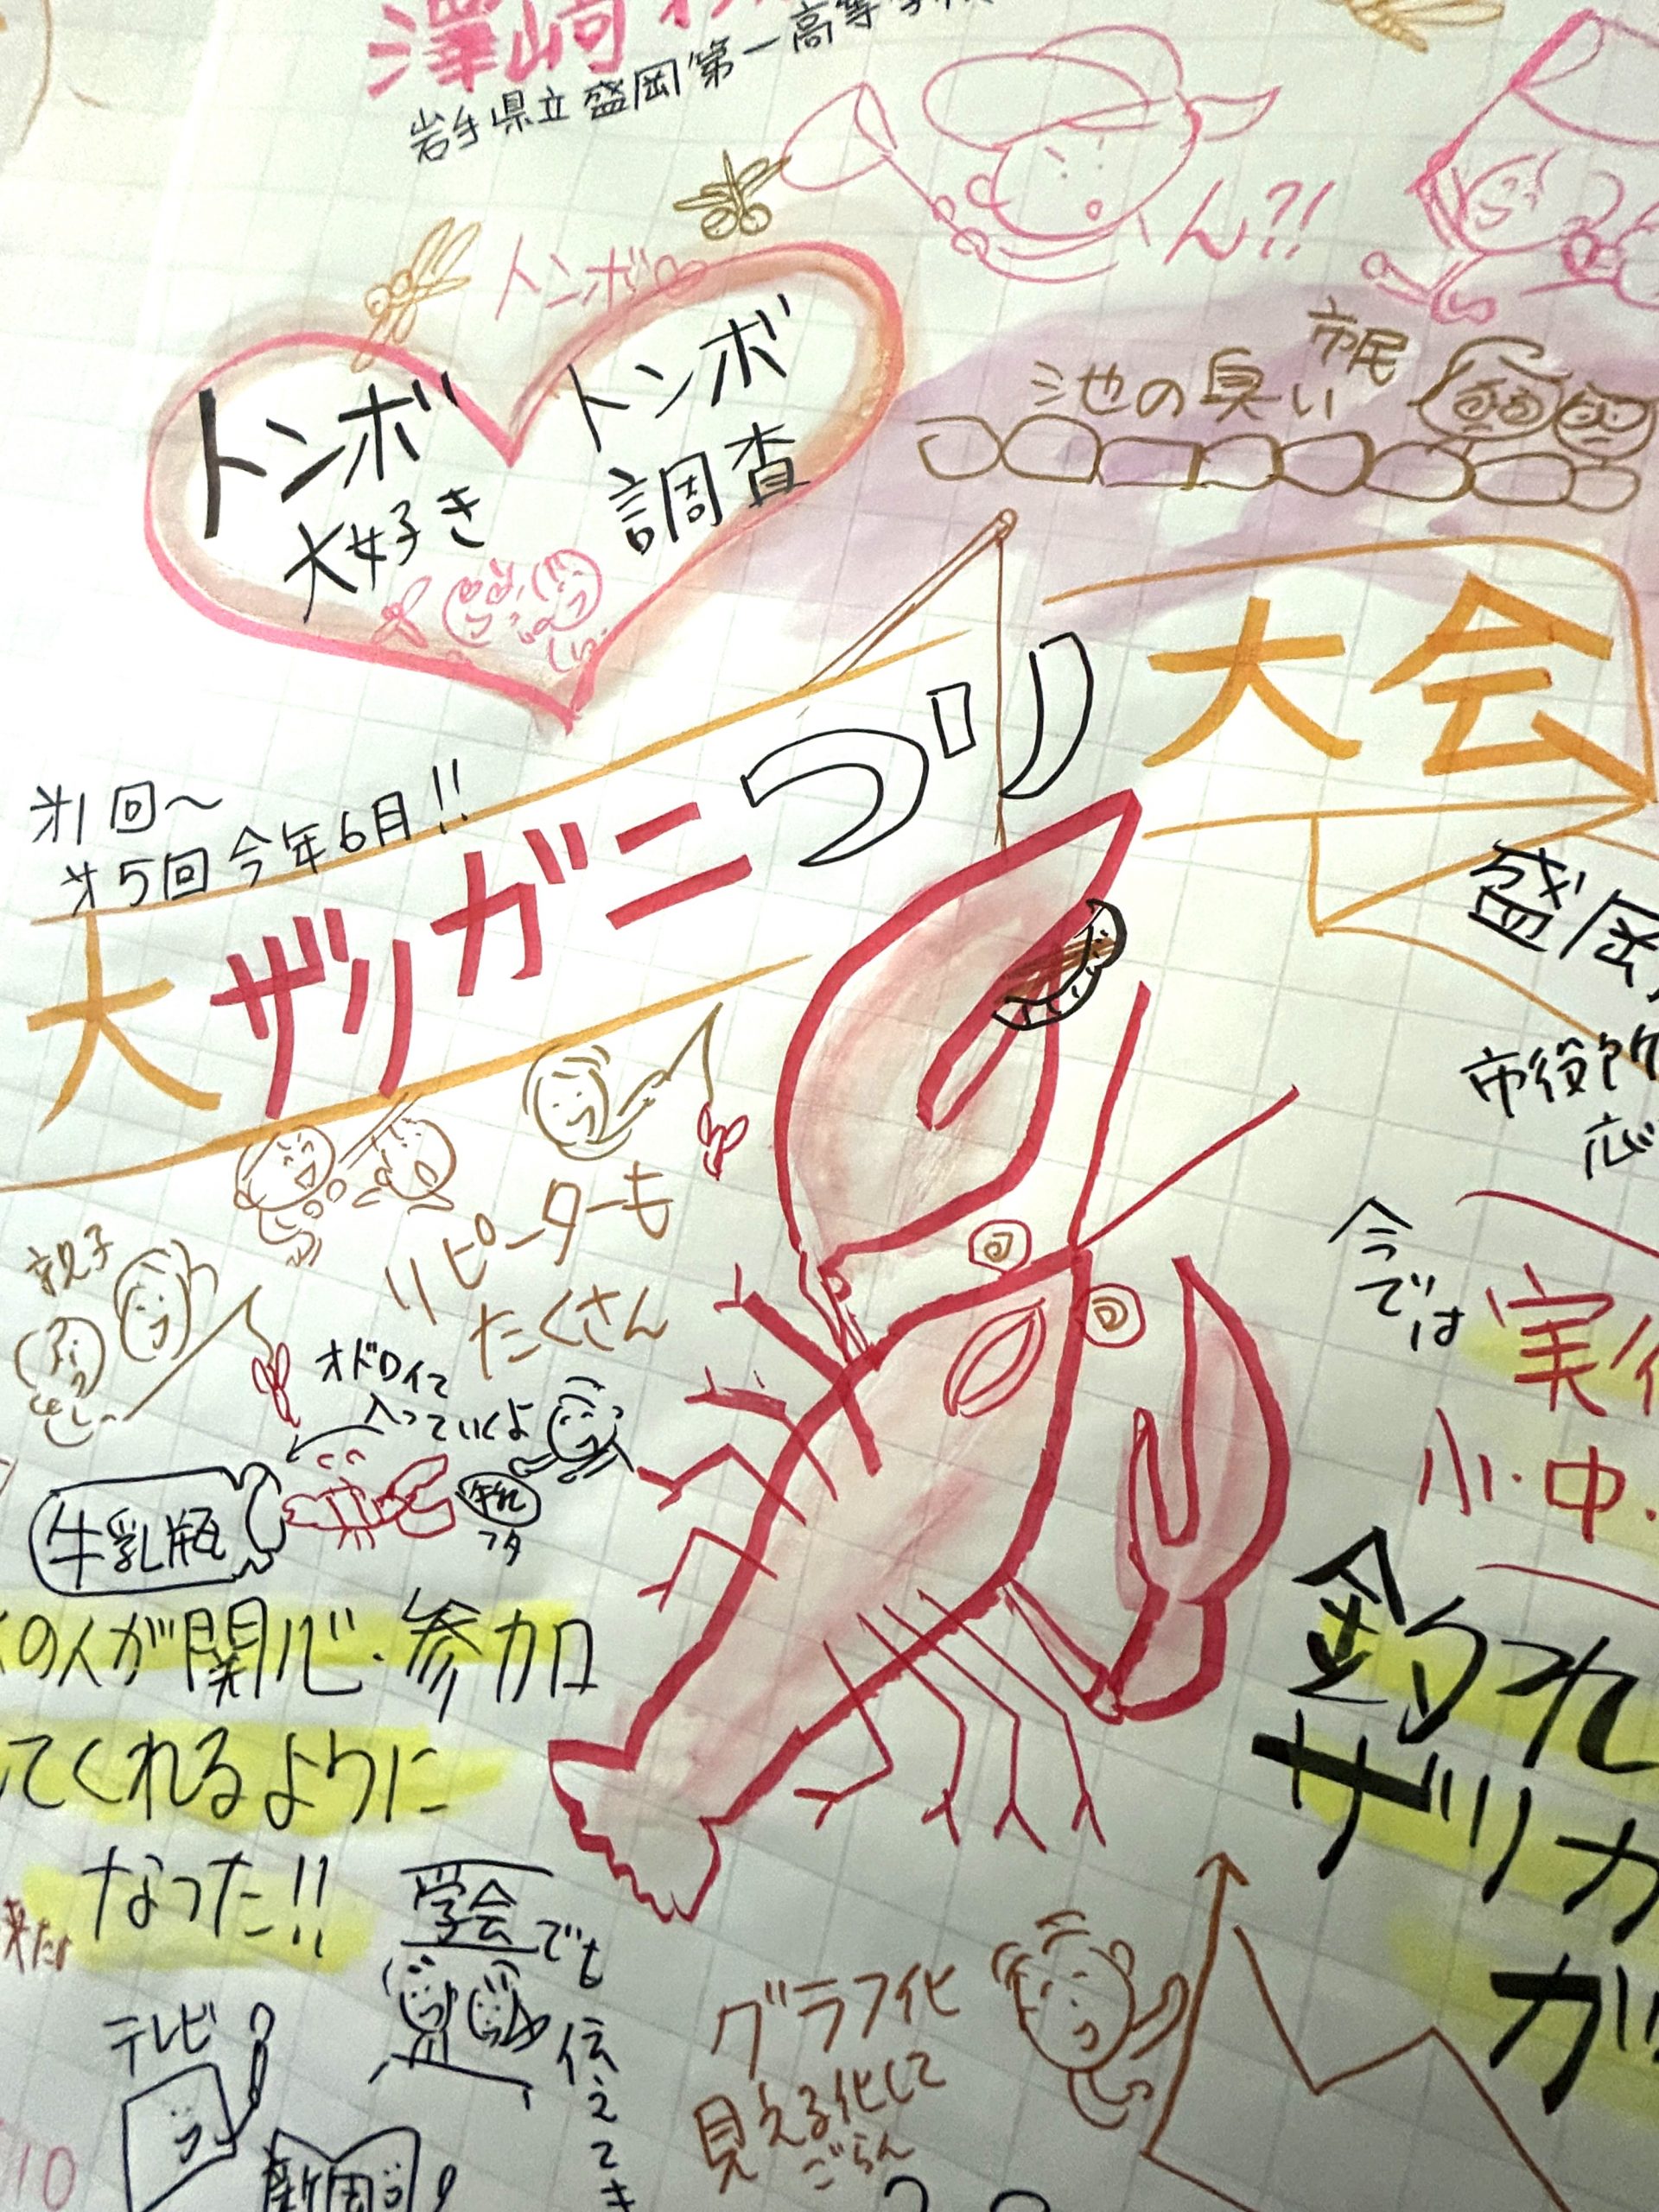 澤崎
岩手県立盛岡第一高等学校
ん?!
トンボ
トンボ
大好き
トンボ
調査
池の臭い
市民
第1回〜
第5回今年6月!!
大ザリガニつり大会
盛岡
市役所
応
リピーターも
たくさん
親子
オドロイて
入っていくよ
牛乳瓶
牛乳
フタ
今
では
実
小・中・
の人が関心・参加
てくれるように
なった!!
釣れ
ザリガ
が
来た
学会でも
伝えて
テレビ
新聞
グラフ化
見える化して
ごらん
10